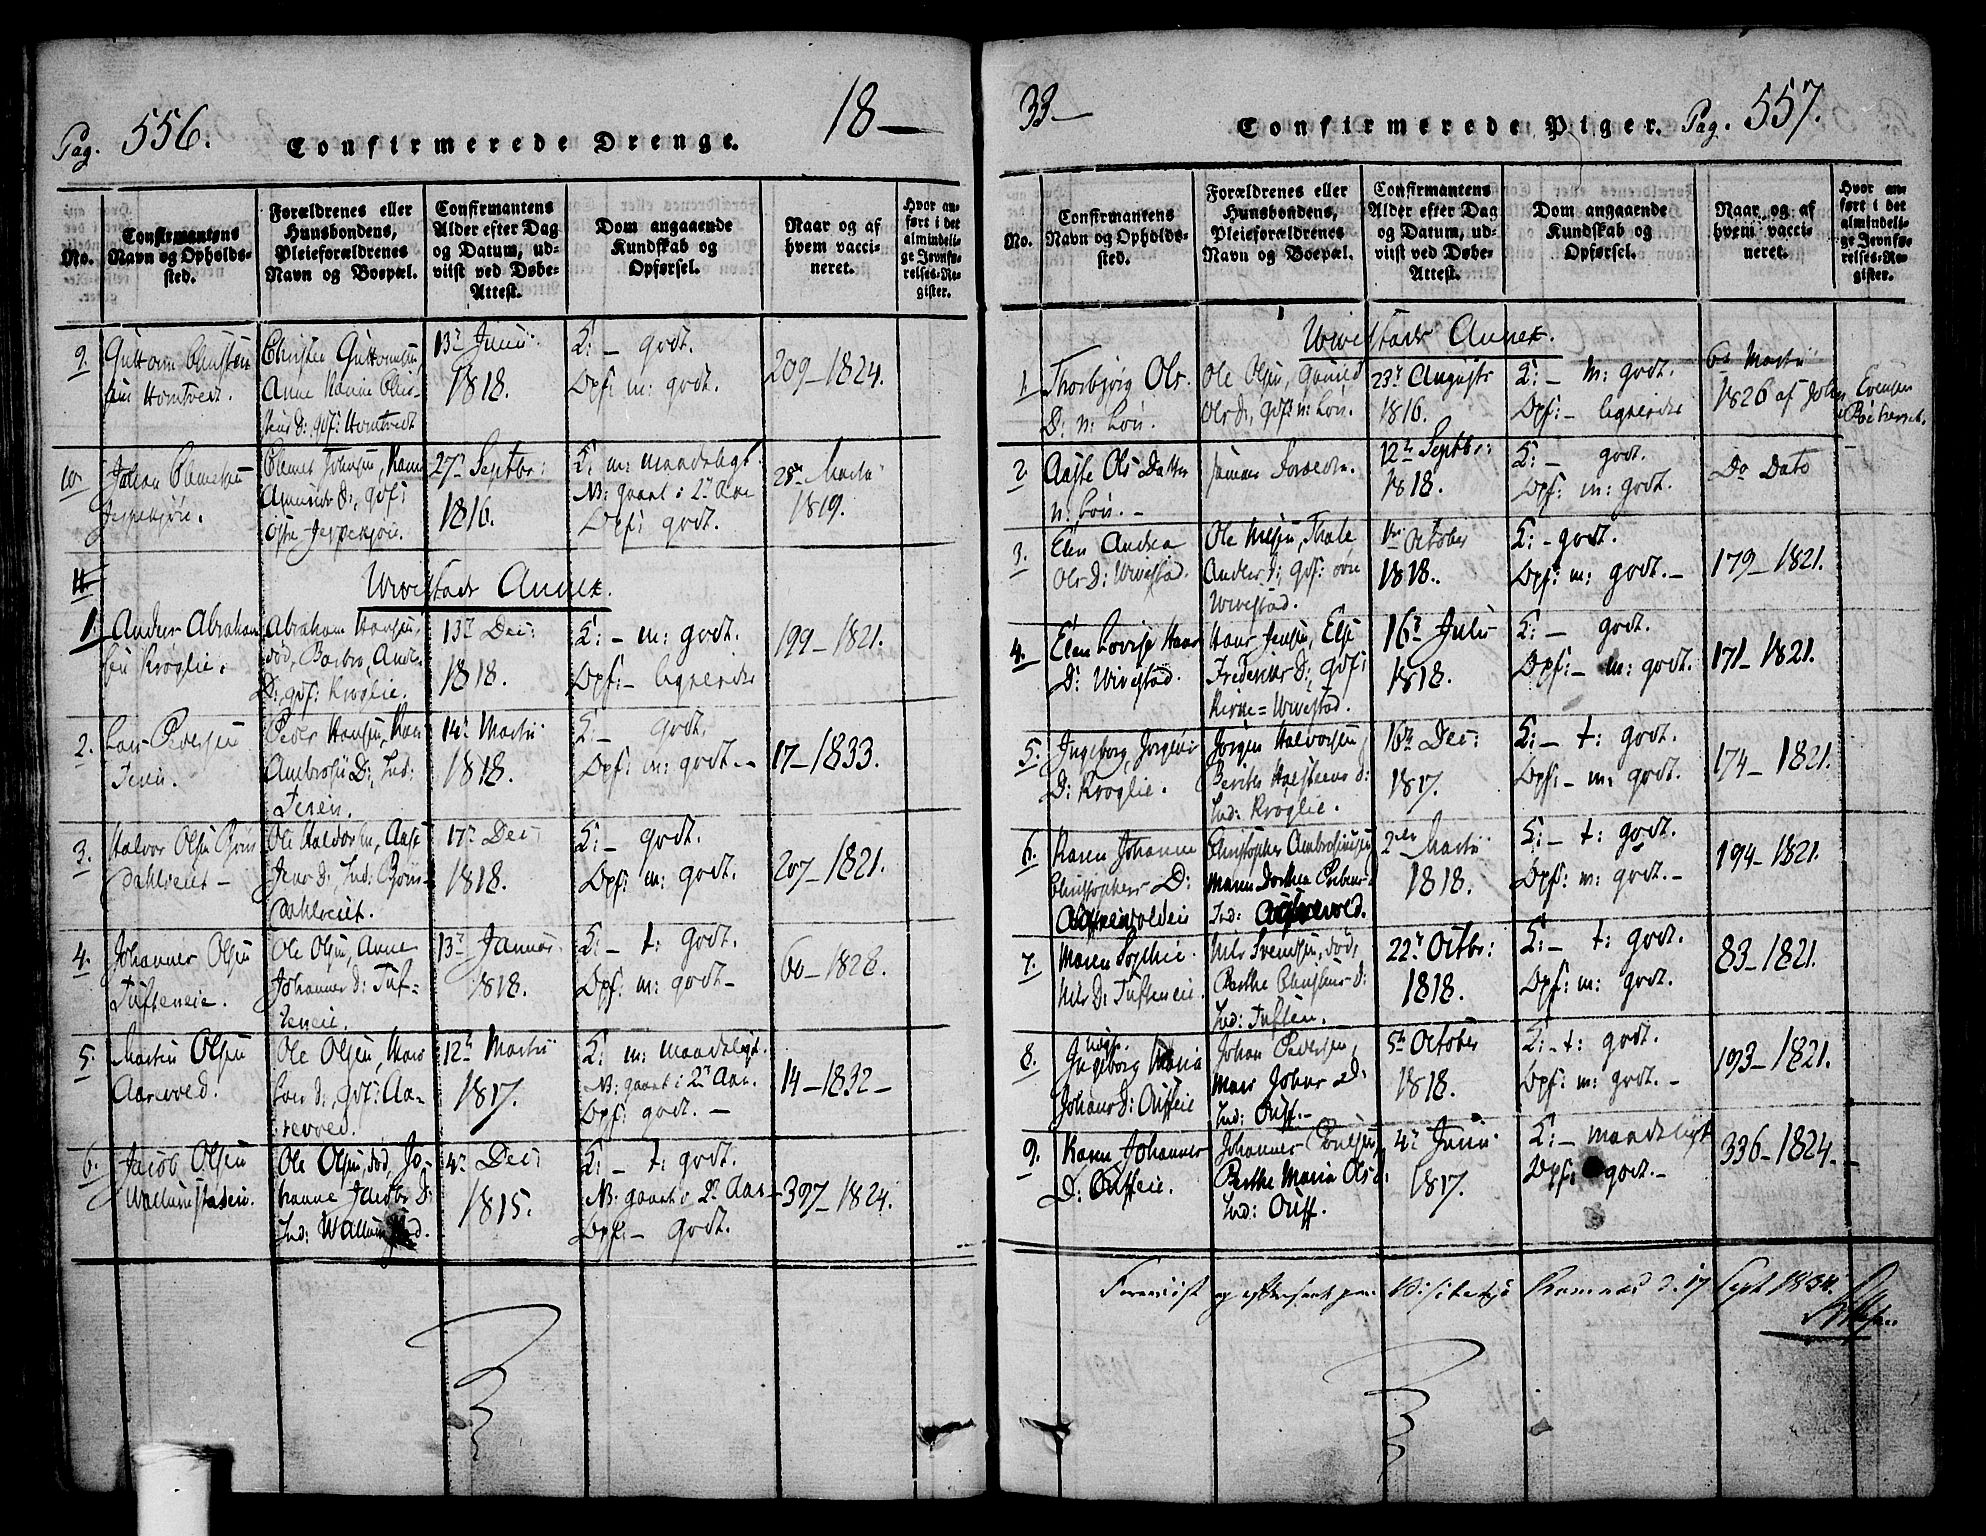 Pag. 556.
Confirmerede Drenge.
18—
No.
Confirmantens Navn og Opholdssted.
Forældrenes eller Huusbondens, Pleieforældrenes Navn og Boepæl.
Confirmantens Alder efter Dag og Datum, udviist ved Døbe-Attest.
Dom angaaende Kundskab og Opførsel.
Naar og af hvem vaccineret.
Hvor anført i det almindelige Jevnførelses-Register.
9.
Guttorm Christensen Homtvedt.
Christen Guttormsen, Anne Karine Christens D: gdf: Homtvedt
13de Junii 1818.
K:— godt.
Opf: m: godt.
209—1824.
10.
Johan
Jeppekjøn.
Jeppekjøn.
27de Septbr: 1816.
K: m: maadeligt
NB: gaaet i 2det Aar
Opf: godt.
28de Martii 1819.
11
Wivestads Annex.
1.
Anders Abrahamsen Kroglie.
Abraham Hansen, død, Barbro Anders D: gdf: Kroglie.
13de Dec: 1818.
K:— m: godt.
Opf:— lignende
199—1821.
2.
Lars Pedersen
Peder Hansen, Ambrosii D: Ind:
14de Martii 1818.
K:— godt.
Opf: m: godt.—
17—1833.
3.
Halvor Olsen Bjørndahleiet—
Ole Halvorsen, Aase Jens D: Ind: Bjørndahleiet.
17de Dec: 1818.
K:— godt.
Opf: m: godt.
207—1821.
4.
Johannes Olsen Tufteneie.
Ole Olsen, Anne Johannes D: Tufteneie.
13de Januar. 1818.
K:— t: godt.
Opf: m: godt—
60—1828.
5.
Martin Olsen Aarevold.
Ole Olsen, Mari Lars D: gdf: Aarevold.
12te Martii 1817.
K: m: maadeligt.
NB: gaaet i 2det Aar.
Opf: godt.—
14—1832—
6.
Jacob Olsen Wallumstadeie.
Ole Olsen, død, Johanne Jacobs D: Ind: Wallumstad.
4de Dec: 1815.
K:— t: godt.
NB: gaaet i 2det Aar—
Opf:— godt.
397—1824.
33—
Confirmerede Piger.
Pag. 557.
No.
Confirmantens Navn og Opholdssted.
Forældrenes eller Huusbondens, Pleieforældrenes Navn og Boepæl.
Confirmantens Alder efter Dag og Datum, udviist ved Døbe-Attest.
Dom angaaende Kundskab og Opførsel.
Naar og af hvem vaccineret.
Hvor anført i det almindelige Jevnførelses-Register.
Wivestads Annex.
1.
Thorbjørg Ols D: n: Løn.
Ole Olsen, Gunild Ols D:, gdf: n: Løn.
23de Augusts 1816.
K:— m: godt.
Opf:— lignende
6te Martii 1826 af John Evensen
2.
Aaste Ols Datter n: Løn.—
samme Forældre.
12te Septbr: 1818.
K:— godt.
Opf: m: godt.
Do Dato
3.
Elen Andrea Ols D: Wivestad.
Ole Thale Anders D: gdf: øvre Wivestad.
1ste October 1818.
K:— godt.
Opf: m: godt.—
179—1821.
4.
Elen Lovise Hans D: Wivestad.
Hans Jensen, Else Frederiks D:, gdf: Kirke=Wivestad.
16de Julii 1818.
K:— godt.
Opf:— m: godt.
171—1821.
5.
Ingeborg Jørgens D: Kroglie.
Jørgen Halvorsen, Berthe Halsteens D: Ind: Kroglie.
16de Dec: 1817.
K:— t: godt.
Opf:— m: godt.
174—1821.
6.
Karen Johanne Christophers D:
Christopher Ambrosiussen, Maren Dorthea Ind:
2den Martii 1818.
K:— t: godt.
Opf: m: godt.—
194—1821.
7.
Maren Sophie Nils D: Tufteneie.
Nils Svendsen, død, Berthe Christens D: Ind: Tuften.
22de Octbr: 1818.
K:— t: godt.
Opf: m: godt.
83—1821.
8.
Ingeborg Maria Johans D:
Johan Pedersen, Mari Johns D: Ind:
5te October 1818.
K:— t: godt.
Opf: m: godt.—
193—1821.
9.
Karen Johannes D:
Johannes Berthe Maria Ols D: Ind:
4de Junii 1817.
K:— maadeligt
Opf: godt.—
336—1824.—
Foreviist og efterseet paa Visitatsen Ramnæs d. 17 Sept 1834.